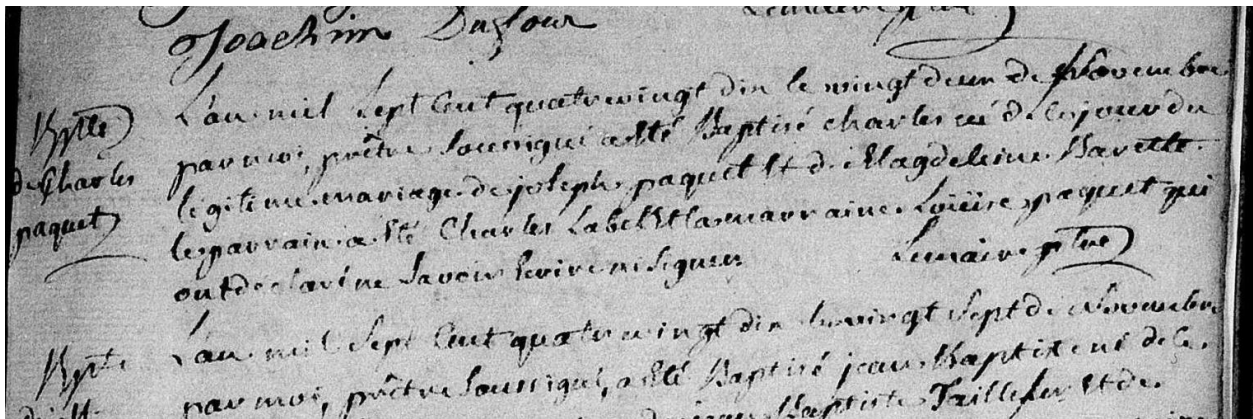 Joachim Dufour Lemaire ptre
Bpte de Charles paquet
L'an mil Sept Cent quatrevingt dix le vingt deux de Novembre
par moi, prêtre Soussigné a Eté Baptisé charles né de ce jour du
légitime mariage de joseph paquet Et de Magdeleine Barette.
le parrain a Eté Charles Label Et la marraine Loüise paquet qui
ont déclaré ne Savoir Ecrire ni Signer Lemaire ptre
Bpte
L'an mil Sept Cent quatrevingt dix le vingt Sept de Novembre
par moi, prêtre Soussigné, a Eté Baptisé jean Baptiste né de ce
Baptiste Taillefer Et de